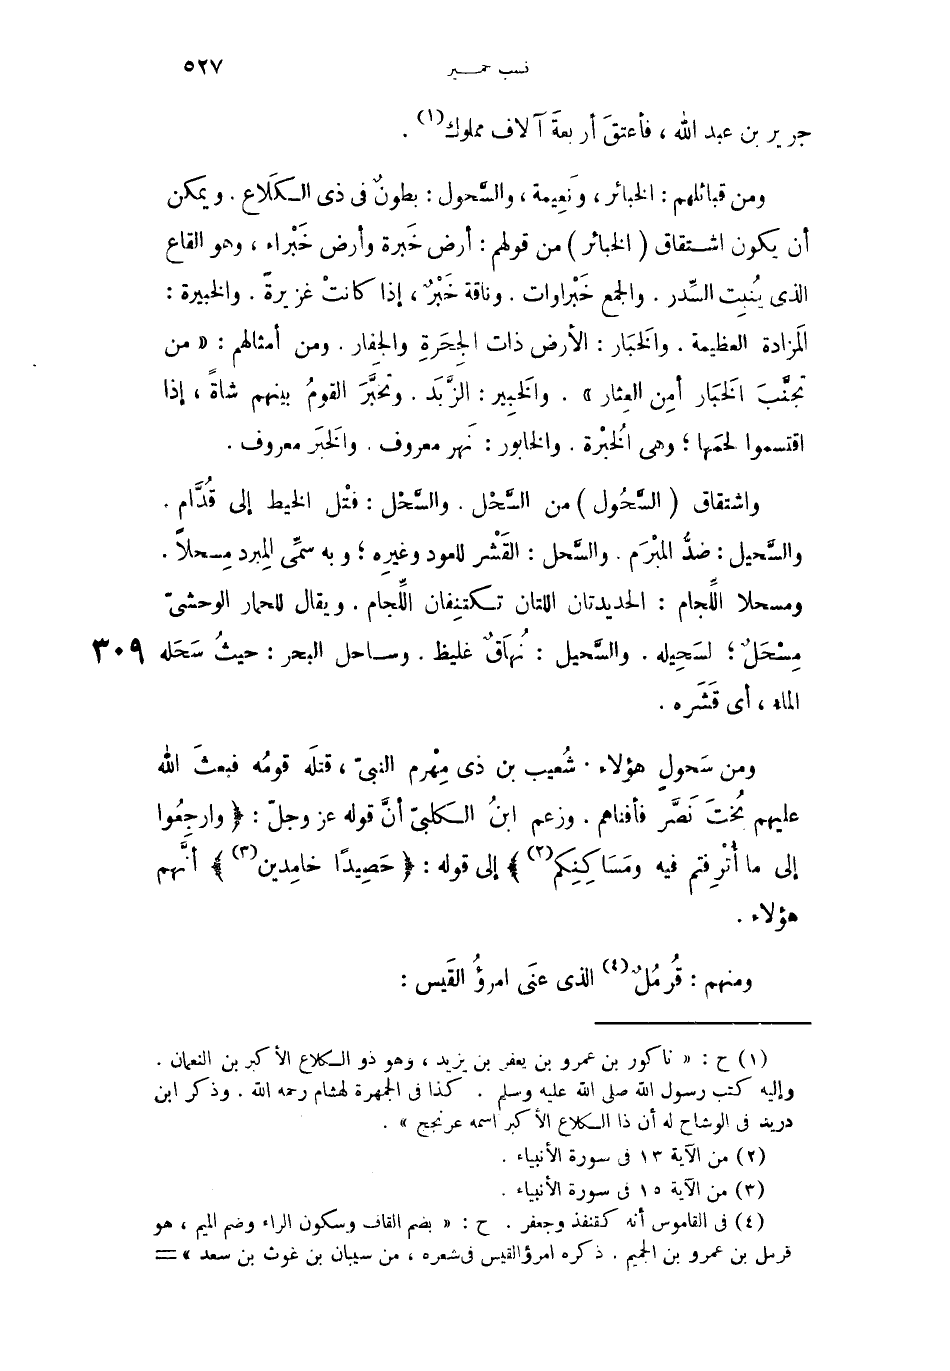 نسب حمير ٥٢٧
جرير بن عبد الله ، فأعتقَ أربعةَ آلاف مملوك(١) .
ومن قبائلهم : الخبائر ، ونَعِيمة ، والسَّحول : بطونٌ فى ذى الكَلَاع . ويمكن
أن يكون اشتقاق ( الخبائر ) من قولهم : أرض خَبرة وأرض خَبْراء ، وهو القاع
الذى يُنبِت السِّدر . والجمع خَبْراوات . وناقة خَبْرٌ ، إذا كانتْ غزيرةً . والخبيرة :
المَزادة العظيمة . والخَبَار : الأرض ذات الجِحَرةِ والجِفار . ومن أمثالهم : « من
تجنَّبَ الخَبَار أمِن العِثار » . والخَبِير : الزَّبَد . وتخبَّرَ القومُ بينهم شاةً ، إذا
اقتسموا لحمَها ؛ وهى الخُبْرة . والخابور : نَهر معروف . والخَبَر معروف .
واشتقاق ( السَّحُول ) من السَّحْل . والسَّحْل : فتْل الخيط إلى قُدَّام .
والسَّحيل : ضدُّ المبْرَم . والسَّحل : القَشْر للعود وغيرِه ؛ وبه سمِّى المِبرد مِسحلاً .
ومسحلا اللِّجام : الحديدتان اللتان تكتنِفان اللِّجام . ويقال للحمار الوحشىّ
مِسْحَلٌ ؛ لسَحِيله . والسَّحيل : نُهاَقٌ غليظ . وساحل البحر : حيثُ سَحَله ٣٠٩
الماء ، أى قَشَره .
ومن سَحولِ هؤلاء · شُعيب بن ذى مِهْرم النبىّ ، قتلَه قومُه فبعثَ الله
عليهم بُخْتَ نَصَّر فأفناهم . وزعم ابنُ الكلبىّ أنَّ قوله عز وجلّ : ﴿ وارجِعُوا
إلى ما أُتْرِفتم فيه ومَسَاكِنِكم(٢) ﴾ إلى قوله : ﴿ حَصِيدًا خامِدين(٣) ﴾ أنَّهم
هؤلاء .
ومنهم : قُرمُلٌ(٤) الذى عنَى امرؤُ القَيس :
(١) ح : « ناكور بن عمرو بن يعفر بن يزيد ، وهو ذو الكلاع الأكبر بن النعمان .
وإليه كتب رسول الله صلى الله عليه وسلم . كذا فى الجمهرة لهشام رحمه الله . وذكر ابن
دريد فى الوشاح له أن ذا الكلاع الأكبر اسمه عرنجج » .
(٢) من الآية ١٣ فى سورة الأنبياء .
(٣) من الآية ١٥ فى سورة الأنبياء .
(٤) فى القاموس أنه كقنفذ وجعفر . ح : « بضم القاف وسكون الراء وضم الميم ، هو
قرمل بن عمرو بن الجميم . ذكره امرؤ القيس فى شعره ، من سيبان بن غوث بن سعد » =